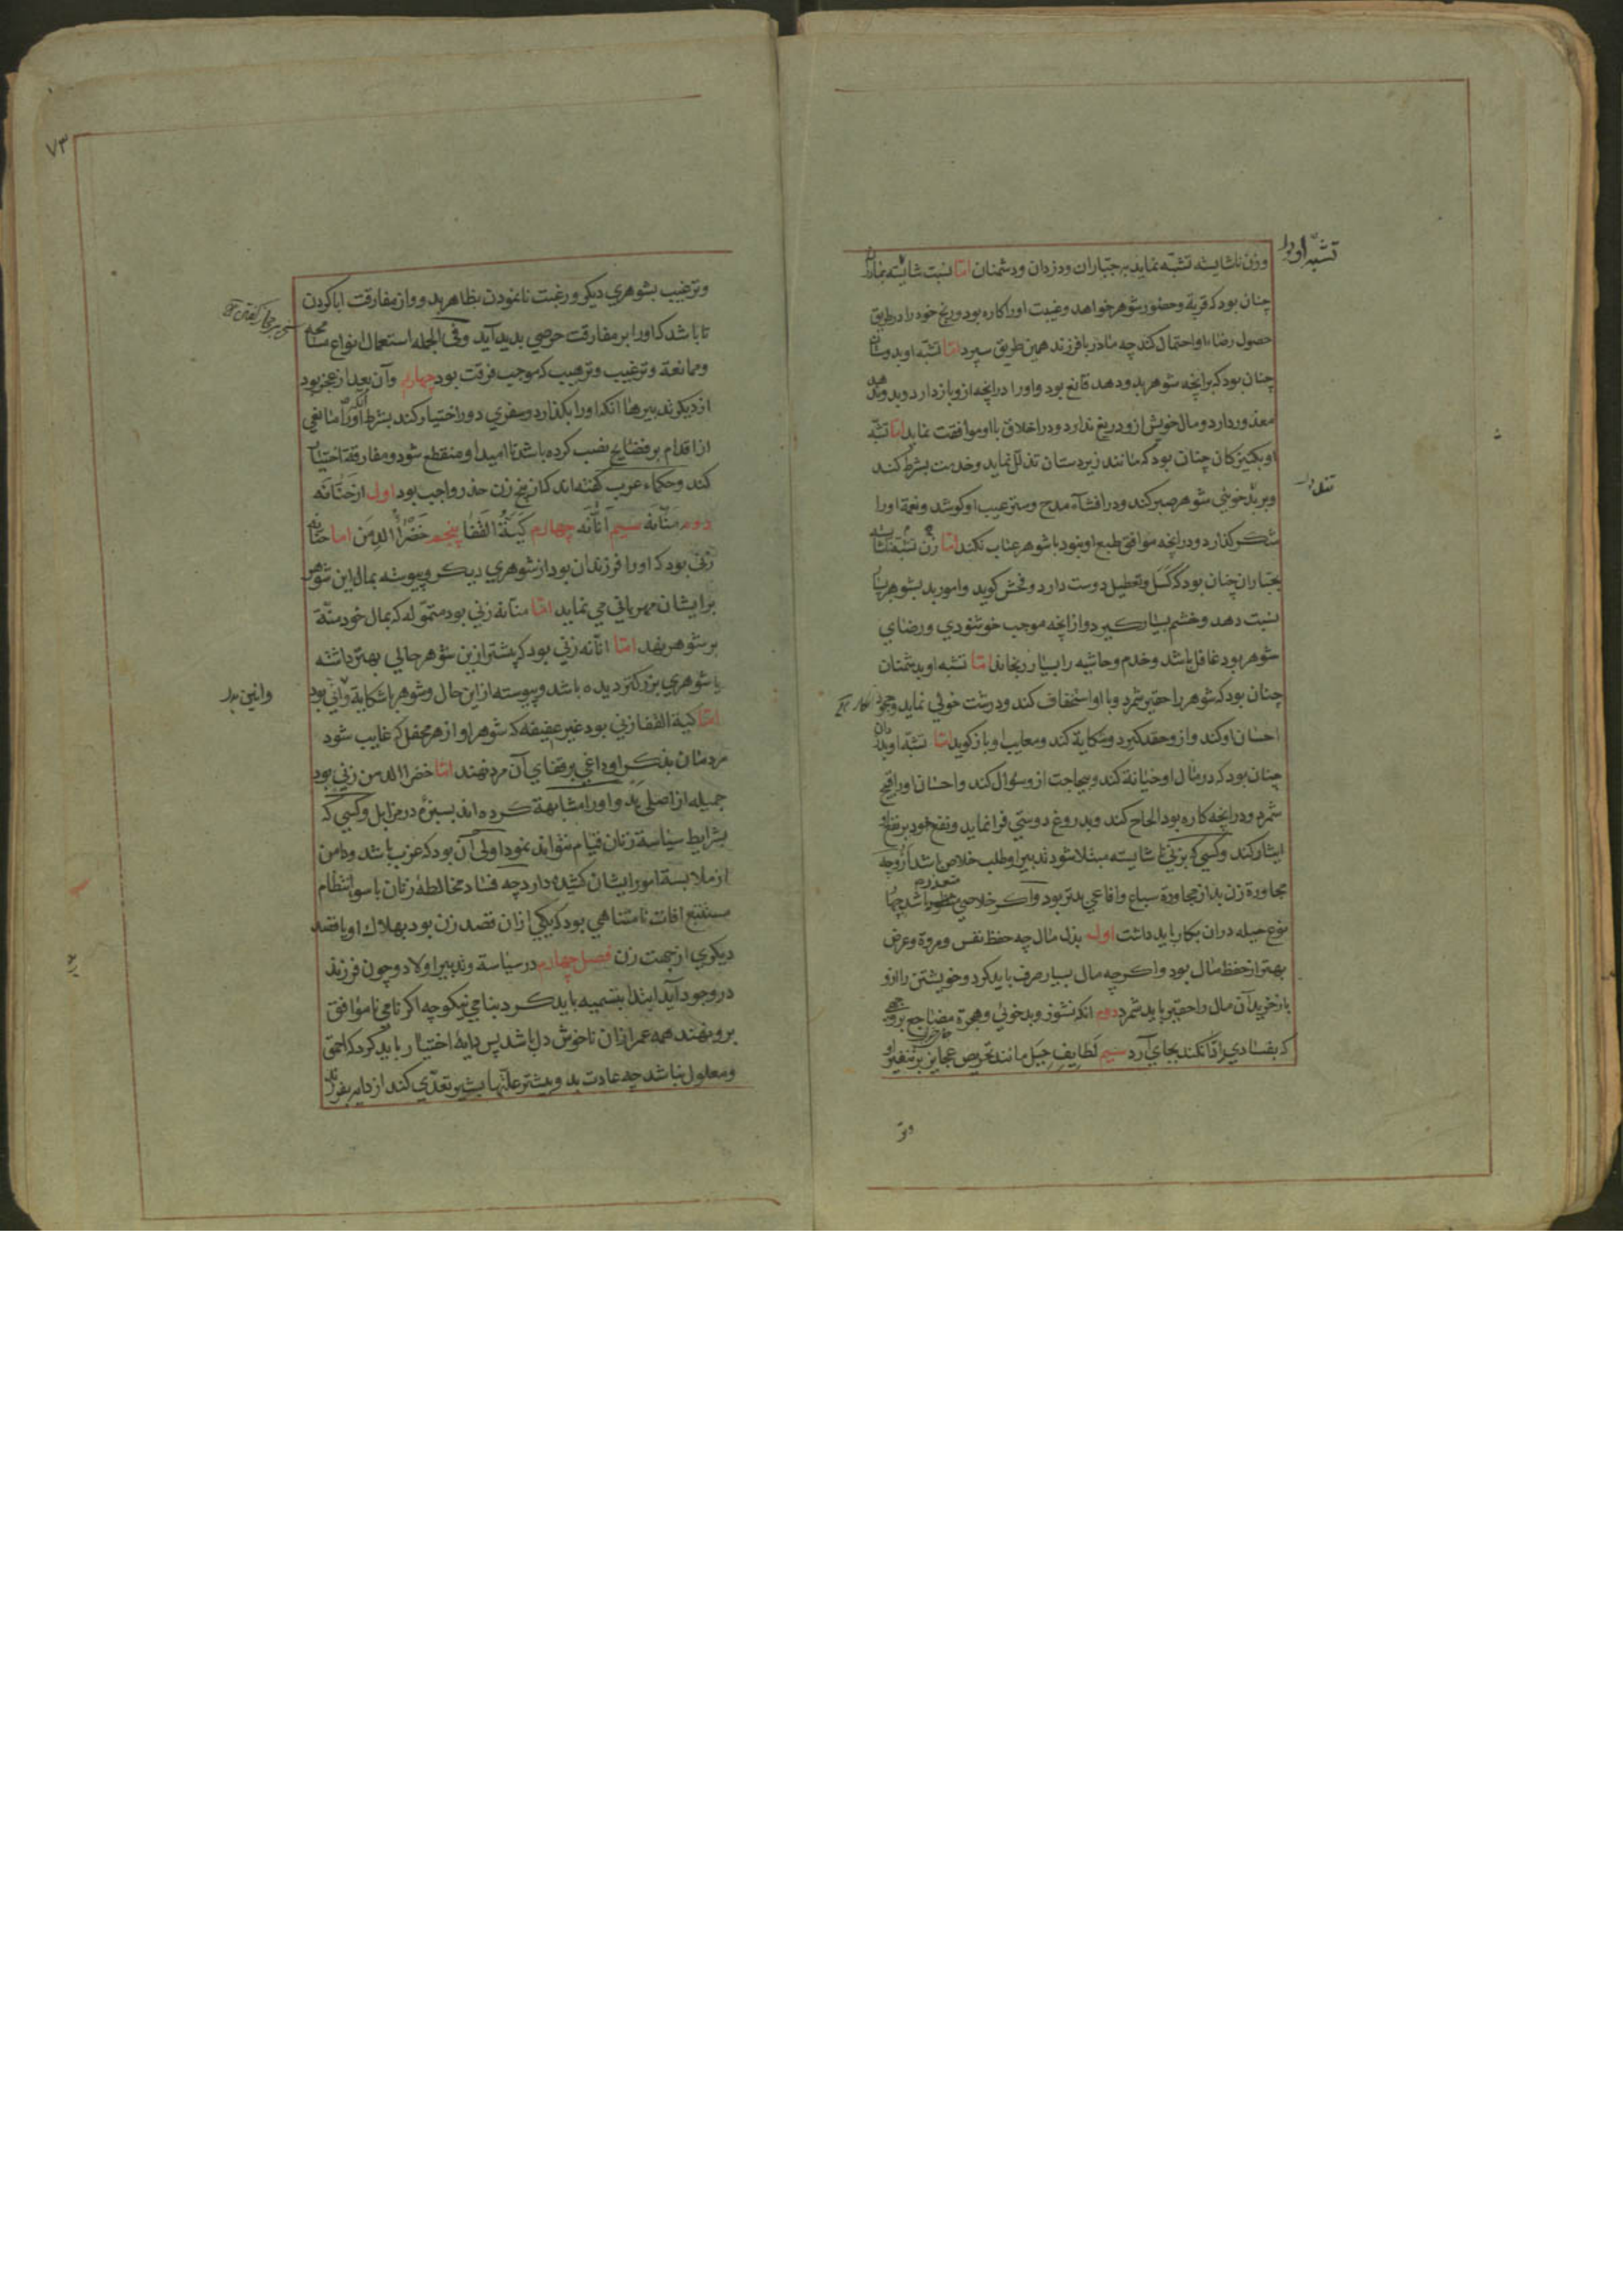 وزن ناشایسته تشبه نماید بجباران ودزدان ودشمنان اما نسبت شایسته بمادران
چنان بود که قربة وحضور شوهر خواهد وغیبت او را کاره بود ورنج خود را در طریق
حصول رضاء او احتمال کند چه مادر با فرزند همین طریق سپرد اما تشبه او بدوستان
چنان بود که برانچه شوهر بدو دهد قانع بود واو را درانچه ازو باز دارد وبدو ندهد
معذور دارد ومال خویش ازو دریغ ندارد ودر اخلاق با او موافقت نماید اما تشبه
او بکنیزکان چنان بود که مانند زیردستان تذلل نماید وخدمت بشرط کند
وبر بدخوئی شوهر صبر کند ودر افشاء مدح وستر عیب او کوشد ونعمة او را
شکر کذارد ودرانچه موافق طبع او نبود با شوهر عتاب نکند اما زن تشبه ناشایسته
بجباران چنان بود که کسل وتعطیل دوست دارد وفحش کوید وامور بد بشوهر بسیار
نسبت دهد وخشم بسیار کیرد واز انچه موجب خوشنودی ورضای
شوهر بود غافل باشد وخدم وحاشیه را بسیار رنجاند اما تشبه او بدشمنان
چنان بود که شوهر را حقیر شمرد وبا او استخفاف کند ودرشت خوئی نماید وجحود
احسان او کند واز وحقد کیرد وشکایة کند ومعایب او باز کوید اما تشبه او بدزدان
چنان بود که در مال او خیانة کند وبیحاجت ازو سؤال کند واحسان او را قبح
شمرد ودرانچه کاره بود الحاح کند وبدروغ دوستی فرا نماید ونفع خود بر نفع او
ایثار کند وکسی که بزنی ناشایسته مبتلا شود تدبیر او طلب خلاص باشد از وچه
مجاورة زن بد از مجاورة سباع وافاعی بدتر بود واکر خلاصی متعذر باشد چهار
نوع حیله دران بکار باید داشت اول بذل مال چه حفظ نفس ومروة وعرض
بهتر از حفظ مال بود واکر چه مال بسیار صرف باید کرد وخویشتن را ازو
باز خرید آن مال را حقیر باید شمرد دوم انکه نشوز وبدخوئی وهجرة مضاجع بر وجهی
که بفسادی ادا نکند بجای آرد سیم لطایف حیل مانند تحریض عجایز بر تنفیر او
وتر
۷۳
وترغیب بشوهری دیکر ورغبت نانمودن بظاهر بدو واز مفارقت ابا کردن
تا باشد که او را بر مفارقت حرصی بدید آید وفی الجمله استعمال انواع مسامحه
وممانعة وترغیب وترهیب که موجب فرقت بود چهارم وآن بعد از عجز بود
از دیکر تدبیرها انکه او را بکذارد وسفری دور اختیار کند بشرط آنکه او را مانعی
از اقدام بر فضایح نصب کرده باشد تا امید او منقطع شود ومفارقة اختیار
کند وحکماء عرب کفته اند که از پنج زن حذر واجب بود اول از حنانه
دوم منانه سیم انانه چهارم کیة القفا پنجم خضراء الدمن اما حنانه
زنی بود که او را فرزندان بود از شوهری دیکر وپیوسته بمال این شوهر
بر ایشان مهربانی می نماید اما منانه زنی بود متموله که بمال خود منة
بر شوهر نهد اما انانه زنی بود که پیشتر ازین شوهر حالی بهتر داشته
یا شوهری بزرکتر دیده باشد وپیوسته از این حال وشوهر با شکایة وانین بود
اما کیة القفا زنی بود غیر عفیفه که شوهر او از هر محفل که غایب شود
مردمان بذکر او داغی بر قفای آن مرد نهند اما خضراء الدمن زنی بود
جمیله از اصلی بد واو را مشابهة کرده اند بسبزه در مزابل وکسی که
بشرایط سیاسة زنان قیام نتواند نمود اولی آن بود که عزب باشد ودامن
از ملابسة امور ایشان کشیده دارد چه فساد مخالطهٔ زنان با سوء انتظام
مستتبع افات نامتناهی بود که یکی ازان قصد زن بود بهلاك او یا قصد
دیکری از جهت زن فصل چهارم در سیاسة وتدبیر اولاد وچون فرزند
در وجود آید ابتدا بتسمیه باید کرد بنامی نیکو چه اکر نامی ناموافق
برو نهند همه عمر ازان ناخوش دل باشد پس دایهٔ اختیار باید کرد که احمق
ومعلول نباشد چه عادت بد وبیشتر علتها بشیر تعدی کند از دایه بفرزند